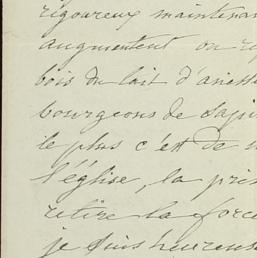 rigoureux maintenan
augmentent on re
bois du lait d'anesse
bourgeons de sapi
le plus c'est de
l'église, la pri
retire la force
je suis heureuse